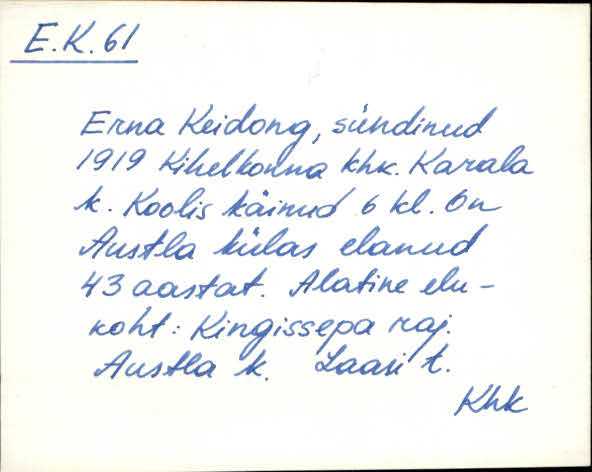 E.K.61
Erna Keidong, sündinud
1919 Kihelkonna khk. Karala
k. Koolis käinud 6 kl. On
Austla külas elanud
43 aastat. Alatine elu-
koht: Kingissepa raj.
Austla k. Laasi t.
Khk